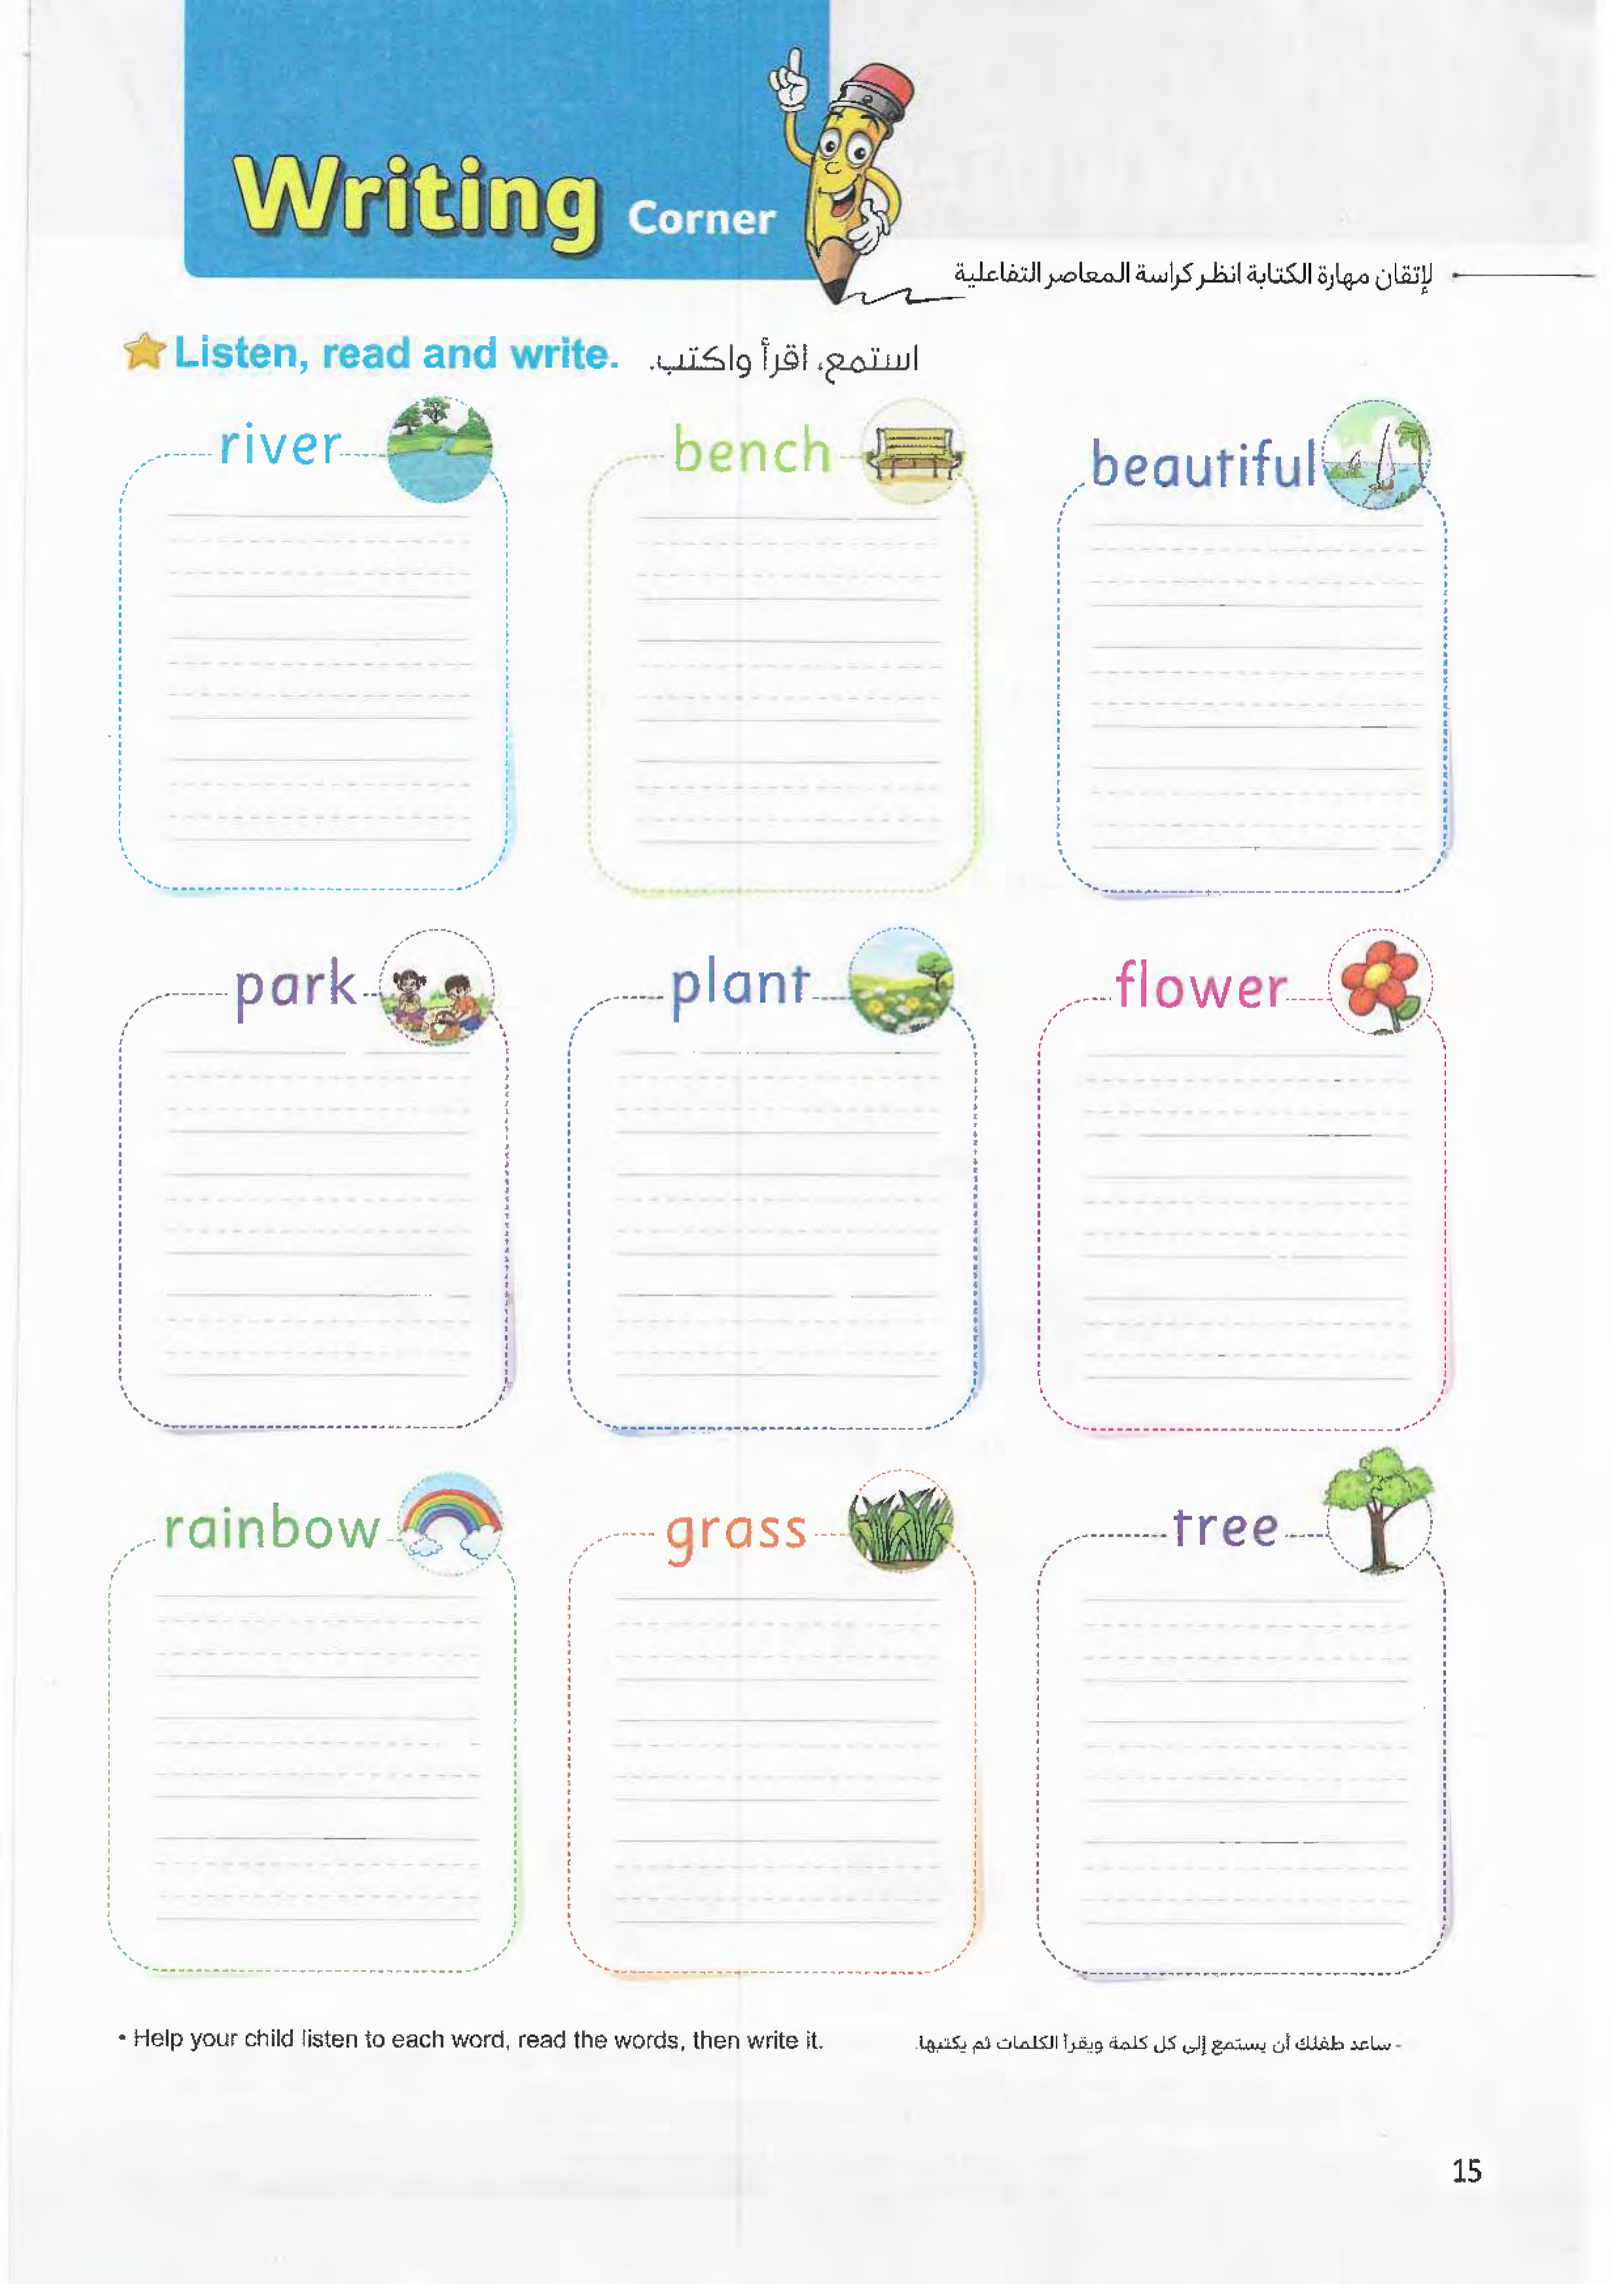 Writing Corner
لإتقان مهارة الكتابة انظر كراسة المعاصر التفاعلية
Listen, read and write. استمع، اقرأ واكتب.
river bench beautiful
park plant flower
rainbow grass tree
• Help your child listen to each word, read the words, then write it. - ساعد طفلك أن يستمع إلى كل كلمة ويقرأ الكلمات ثم يكتبها.
15